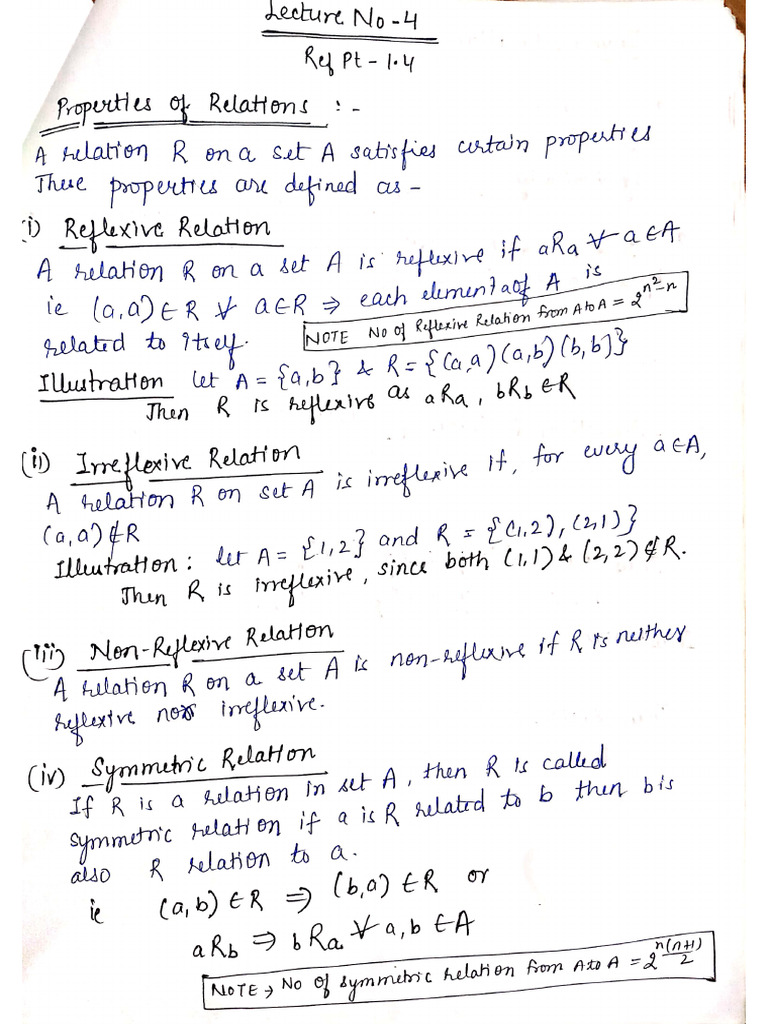 Lecture No-4
Ref Pt - 1.4
Properties of Relations :-
A relation R on a set A satisfies certain properties
These properties are defined as -
(i) Reflexive Relation
A relation R on a set A is reflexive if aRa ∀ a∈A
ie (a,a)∈R ∀ a∈R ⇒ each element a of A is
related to itself.
NOTE No of Reflexive Relation from A to A = 2^{n²-n}
Illustration let A = {a,b} & R = {(a,a)(a,b)(b,b]}
Then R is reflexive as aRa, bRb ∈R
(ii) Irreflexive Relation
A relation R on set A is irreflexive if, for every a∈A,
(a,a)∉R
Illustration: let A = {1,2} and R = {(1,2),(2,1)}
Then R is irreflexive, since both (1,1) & (2,2)∉R.
(iii) Non-Reflexive Relation
A relation R on a set A is non-reflexive if R is neither
reflexive nor irreflexive.
(iv) Symmetric Relation
If R is a relation in set A, then R is called
symmetric relation if a is R related to b then b is
also R relation to a.
ie (a,b) ∈R ⇒ (b,a) ∈R or
aRb ⇒ bRa ∀ a,b ∈A
NOTE → No of symmetric relation from A to A = 2^{n(n+1)/2}